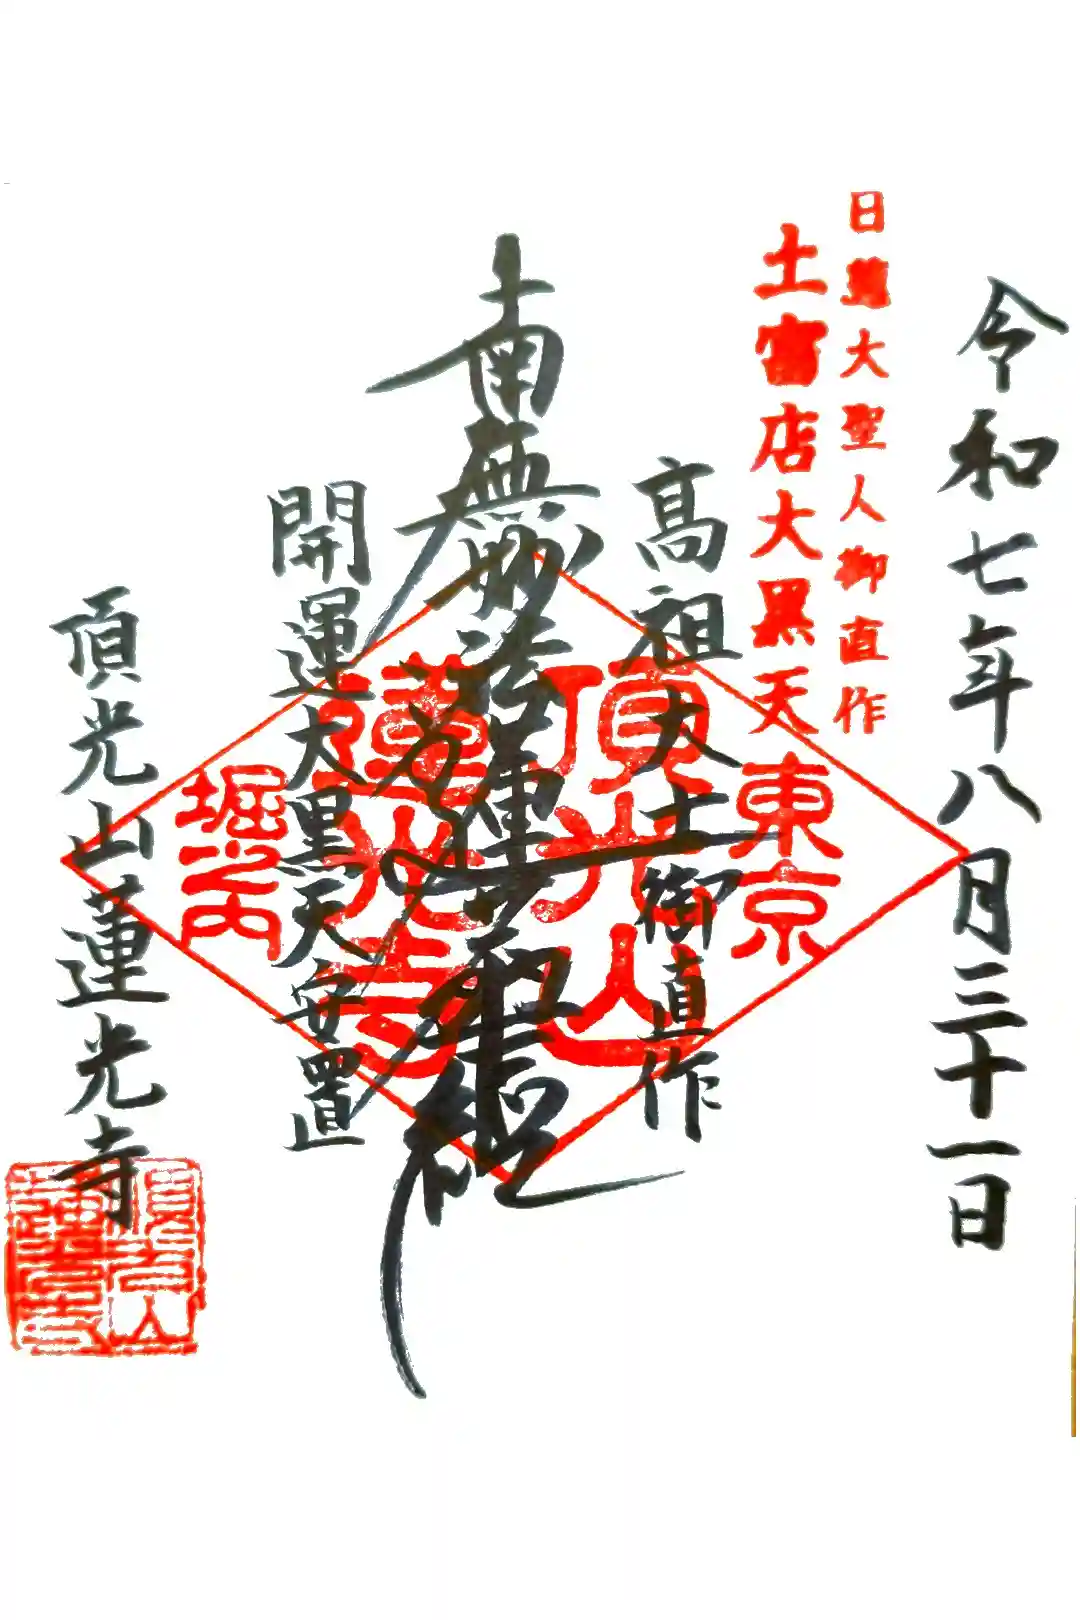 令和七年八月三十一日
日蓮大聖人御直作
土富店大黒天
東京
高祖大士御直作
頂光山
南無妙法蓮華経
蓮光寺
開運大黒天安置
堀之内
頂光山蓮光寺
頂光山
蓮光寺